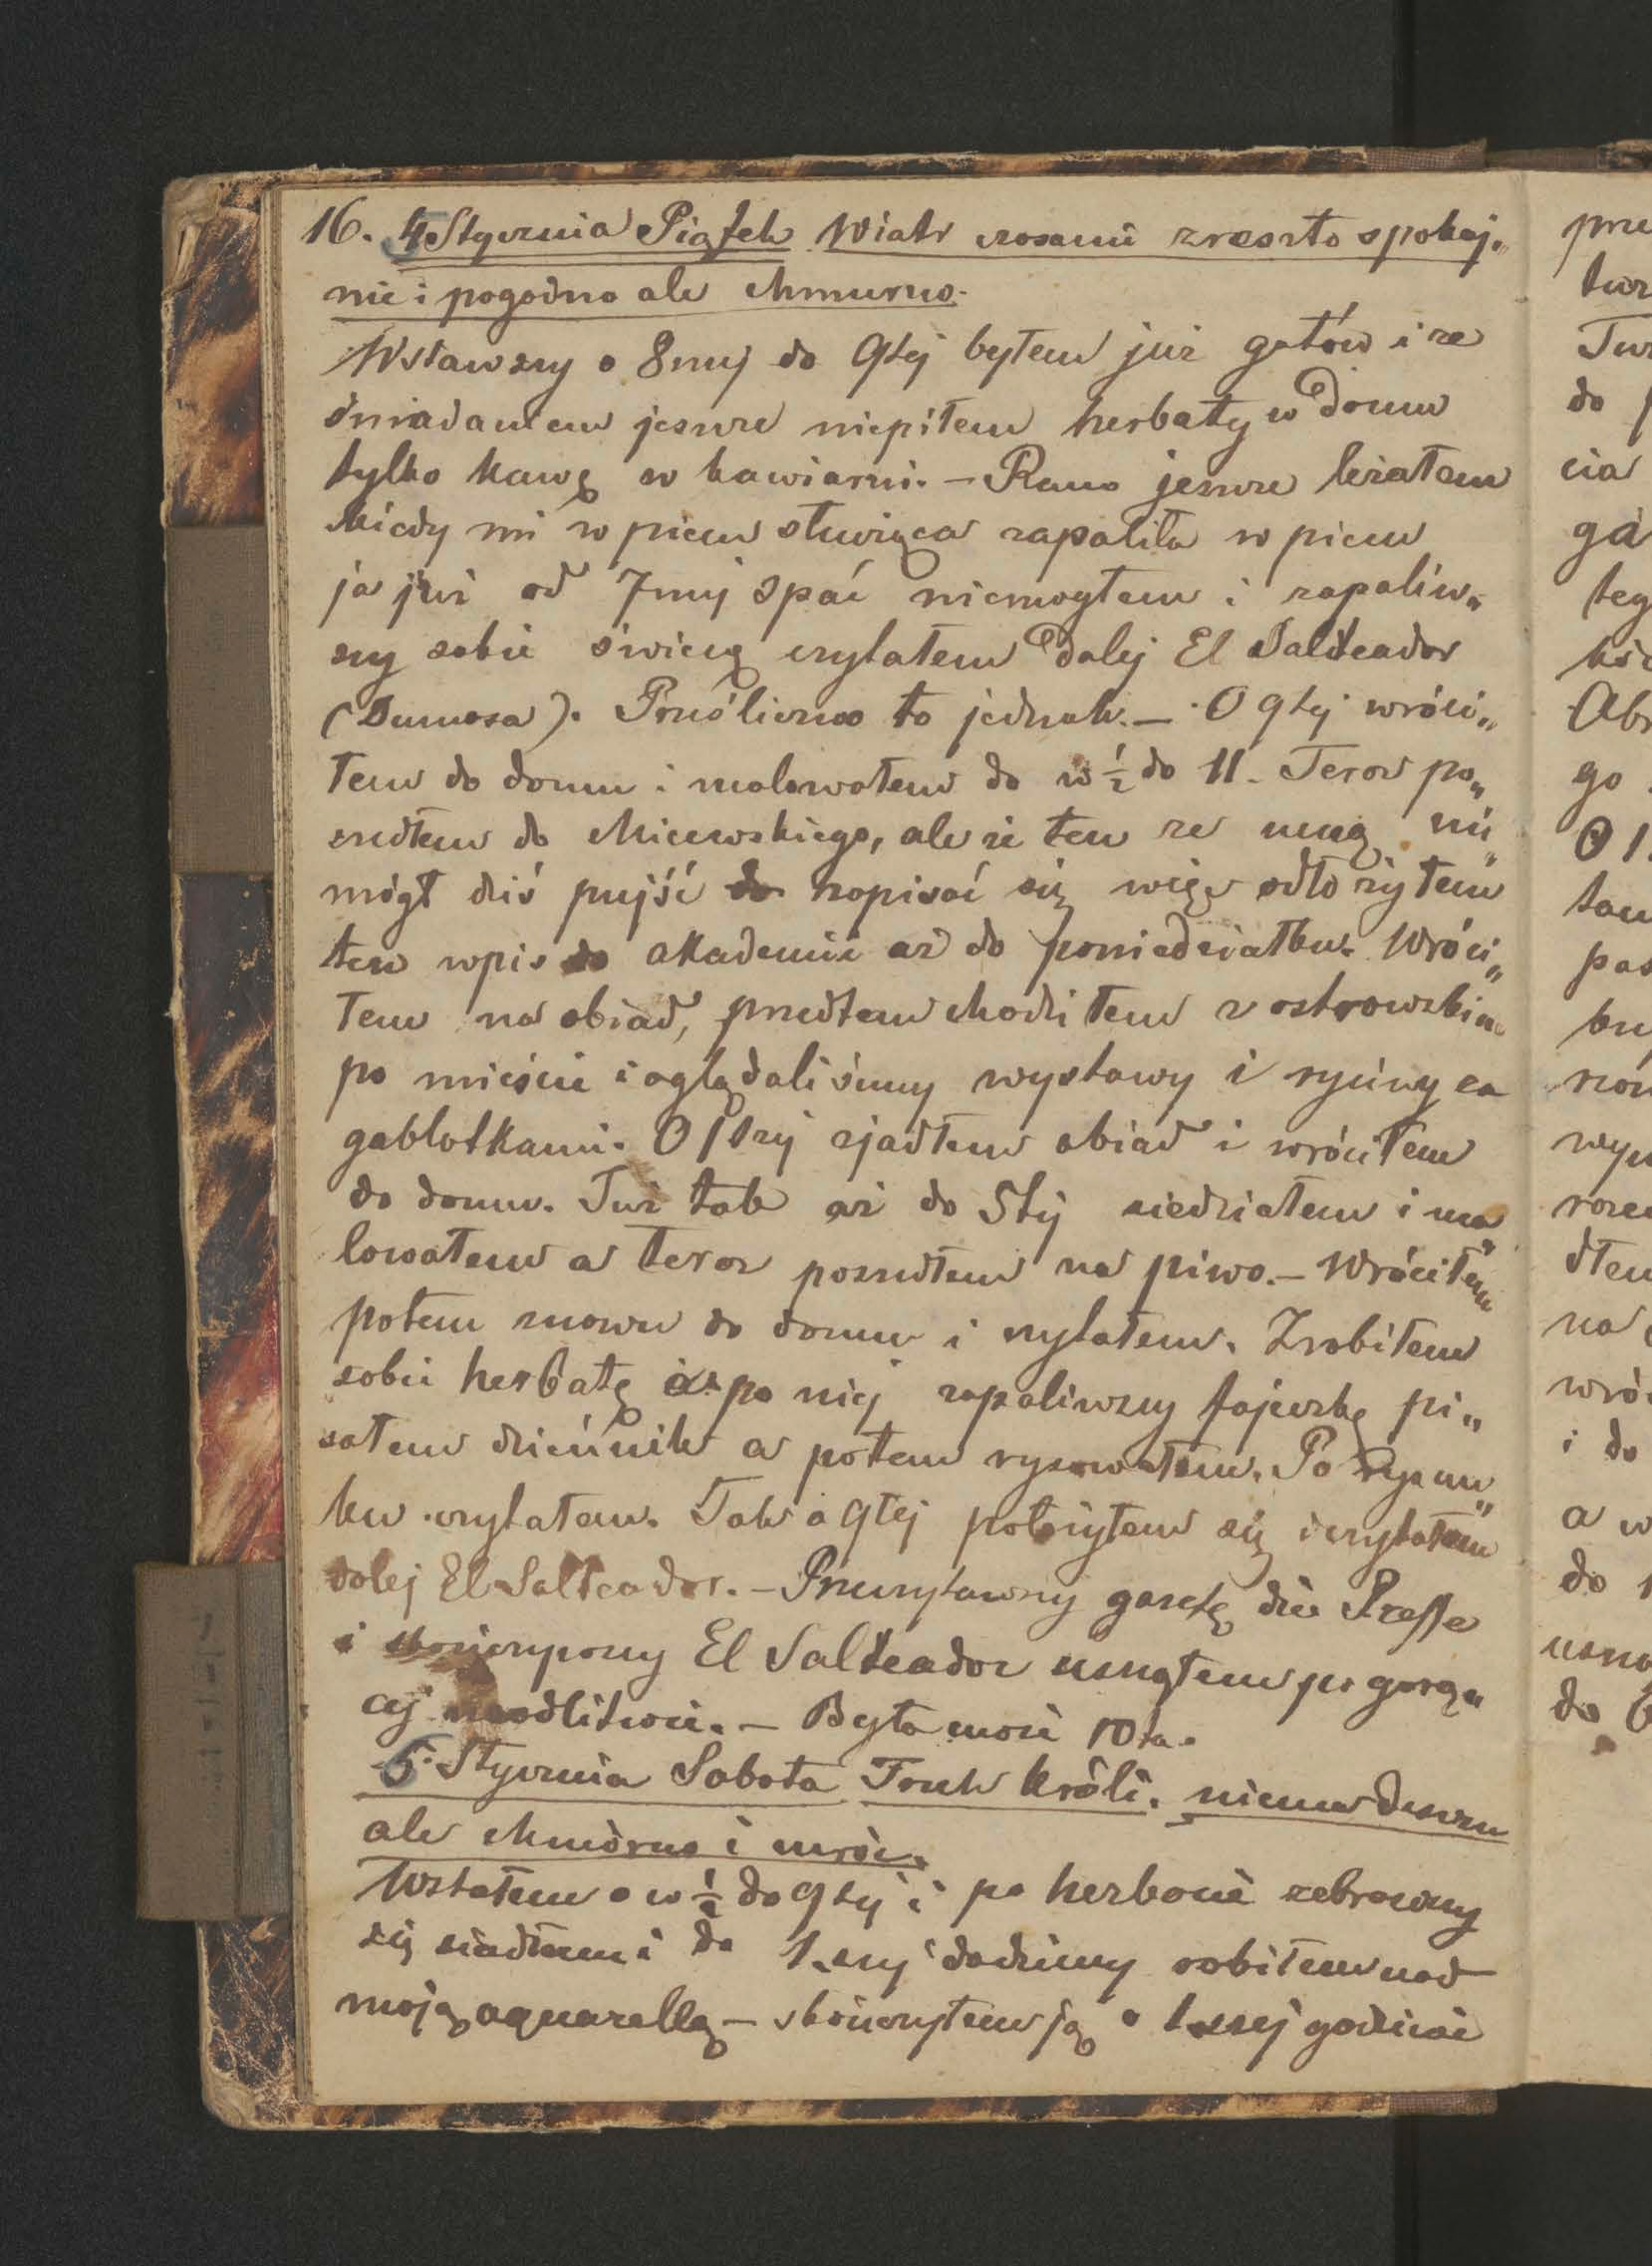 16. 4 Stycznia Piątek Wiatr czasami zreszto spokoj„
nie i pogodno ale chmurno.
Wstawszy o 8mej do 9tej byłem już gotów i ze
śniadaniem jeszcze niepiłem herbaty w domu
tylko kawę w kawiarni. – Rano jeszcze leżałem
kiedy mi w piecu służąca zapaliła w piecu
ja już od 7mej spać niemogłem i zapaliw„
szy sobie świecę czytałem dalej El Salteador
(Dumasa). Prześliczne to jednak. – O 9tej wróci„
łem do domu i malowałem do w ½ do 11. Teraz po„
szedłem do Micewskiego, ale że ten ze mną nie„
mógł dziś pujść do zapisać się więc odłożyłem
ten wpis do akademii aż do poniedziałku. Wróci„
łem na obiad, przedtem chodziłem z ostrowskim
po mieście i oglądaliśmy wystawy i ryciny za
gablotkami. O 1szej zjadłem obiad i wróciłem
do domu. Już tak aż do 5tej siedziałem i ma„
lowałem a teraz poszedłem na piwo. – Wróciłem
potem znowu do domu i czytałem. Zrobiłem
sobie herbatę i po niej zapaliwszy fajeczkę pi„
sałem dzieńnik a potem rysowałem. Po rysun„
ku czytałem. Tak o 9tej położyłem się i czytałem
dalej El Salteador. – Przeczytawszy gazetę die Presse
i skończywszy El Salteador usnąłem po gorą„
cej modlitwie. – Była może 10ta.
5. Stycznia Sobota Trzech króli. niema deszczu
ale chmórno i mróz.
Wstałem o w ½ do 9tej i po herbacie zebrawszy
się siadłem i do 1szej godziny robiłem nad
moją aquarellą – skończyłem ją o 1szej godzinie
prze
do
cia
go
O 1
i do
a w
do
do